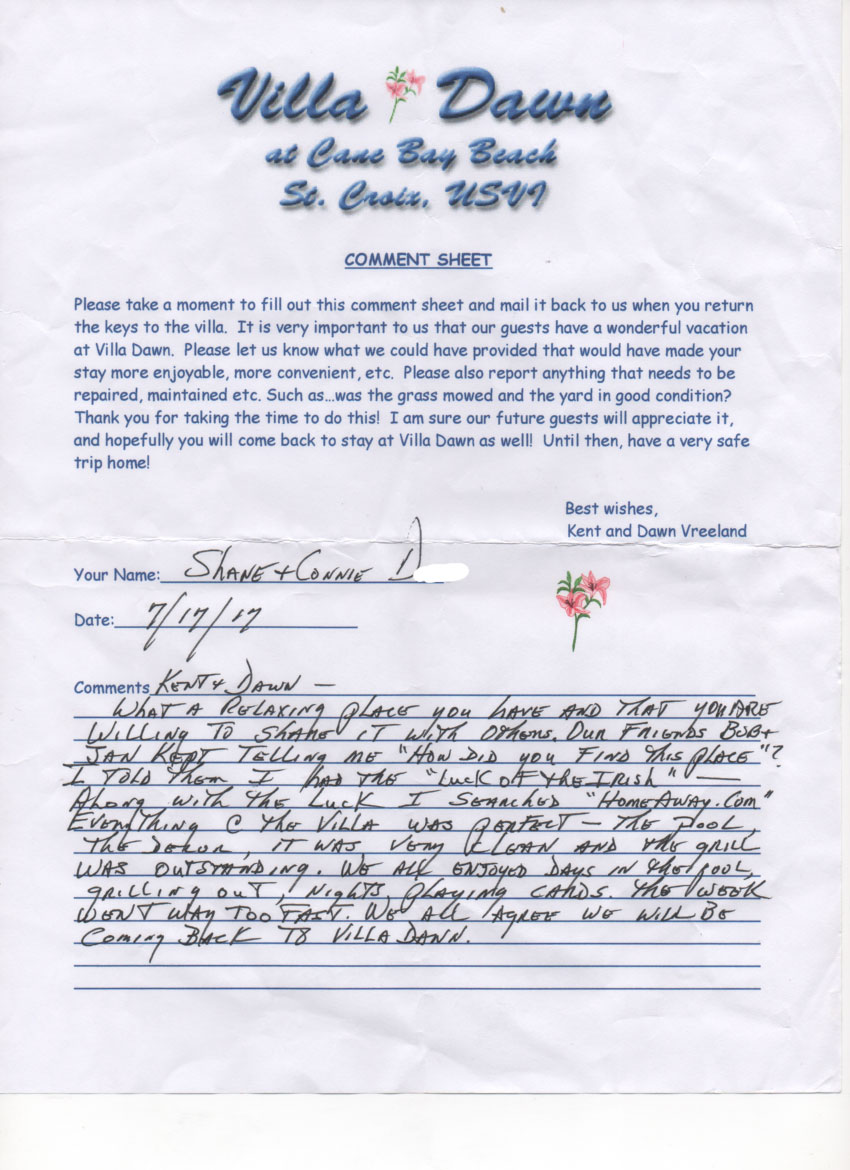 Villa Dawn
at Cane Bay Beach
St. Croix, USVI
COMMENT SHEET
Please take a moment to fill out this comment sheet and mail it back to us when you return
the keys to the villa. It is very important to us that our guests have a wonderful vacation
at Villa Dawn. Please let us know what we could have provided that would have made your
stay more enjoyable, more convenient, etc. Please also report anything that needs to be
repaired, maintained etc. Such as...was the grass mowed and the yard in good condition?
Thank you for taking the time to do this! I am sure our future guests will appreciate it,
and hopefully you will come back to stay at Villa Dawn as well! Until then, have a very safe
trip home!
Best wishes,
Kent and Dawn Vreeland
Your Name: SHANE + CONNIE D
Date: 7/17/17
Comments KENT & DAWN —
WHAT A RELAXING PLACE YOU HAVE AND THAT YOU ARE
WILLING TO SHARE IT WITH OTHERS. OUR FRIENDS BOB +
JAN KEPT TELLING ME "HOW DID YOU FIND THIS PLACE"?
I TOLD THEM I HAD THE "LUCK OF THE IRISH" —
ALONG WITH THE LUCK I SEARCHED "HOMEAWAY.COM"
EVERYTHING @ THE VILLA WAS PERFECT — THE POOL,
THE DEKOR, IT WAS VERY CLEAN AND THE GRILL
WAS OUTSTANDING. WE ALL ENJOYED DAYS IN THE POOL,
GRILLING OUT, NIGHTS PLAYING CARDS. THE WEEK
WENT WAY TOO FAST. WE ALL AGREE WE WILL BE
COMING BACK TO VILLA DAWN.